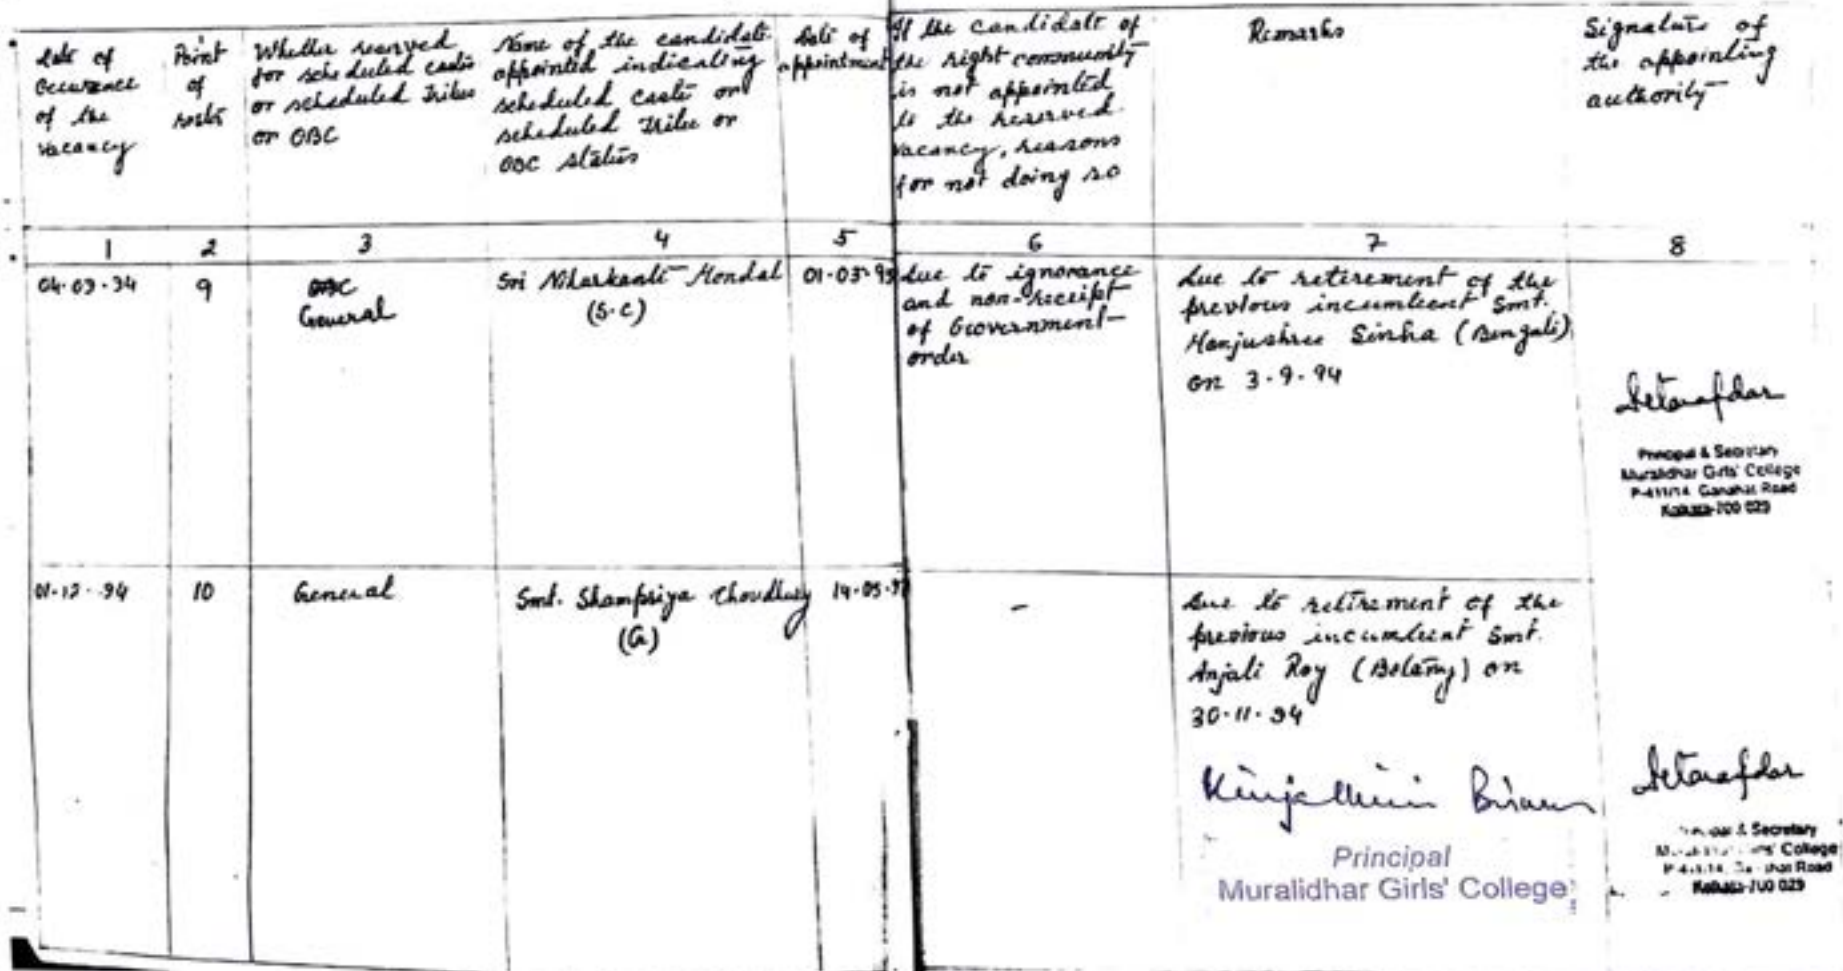 Date of
Occurance
of the
vacancy
Point
of
roster
Whether reserved
for scheduled caste
or scheduled Tribes
or OBC
Name of the candidate
appointed indicating
scheduled caste or
scheduled Tribe or
OBC status
Date of
appointment
If the candidate of
the right community
is not appointed
to the reserved
vacancy, reasons
for not doing so
Remarks
Signature of
the appointing
authority
1 2 3 4 5 6 7 8
9
OBC
General
Sri Niharkanti Mondal
(S.C)
due to ignorance
and non-receipt
of Government
order
due to retirement of the
previous incumbent Smt.
Manjushree Sinha (Bengali)
on 3.9.94
Principal & Secretary
Muralidhar Girls' College
P-411/14, Gariahat Road
Kolkata-700 029
01-12-94
10
General
Smt. Shampriya Choudhury
(G)
-
due to retirement of the
previous incumbent Smt.
Anjali Roy (Botany) on
30.11.94
Principal
Muralidhar Girls' College
Principal & Secretary
Muralidhar Girls' College
P-411/14, Gariahat Road
Kolkata-700 029